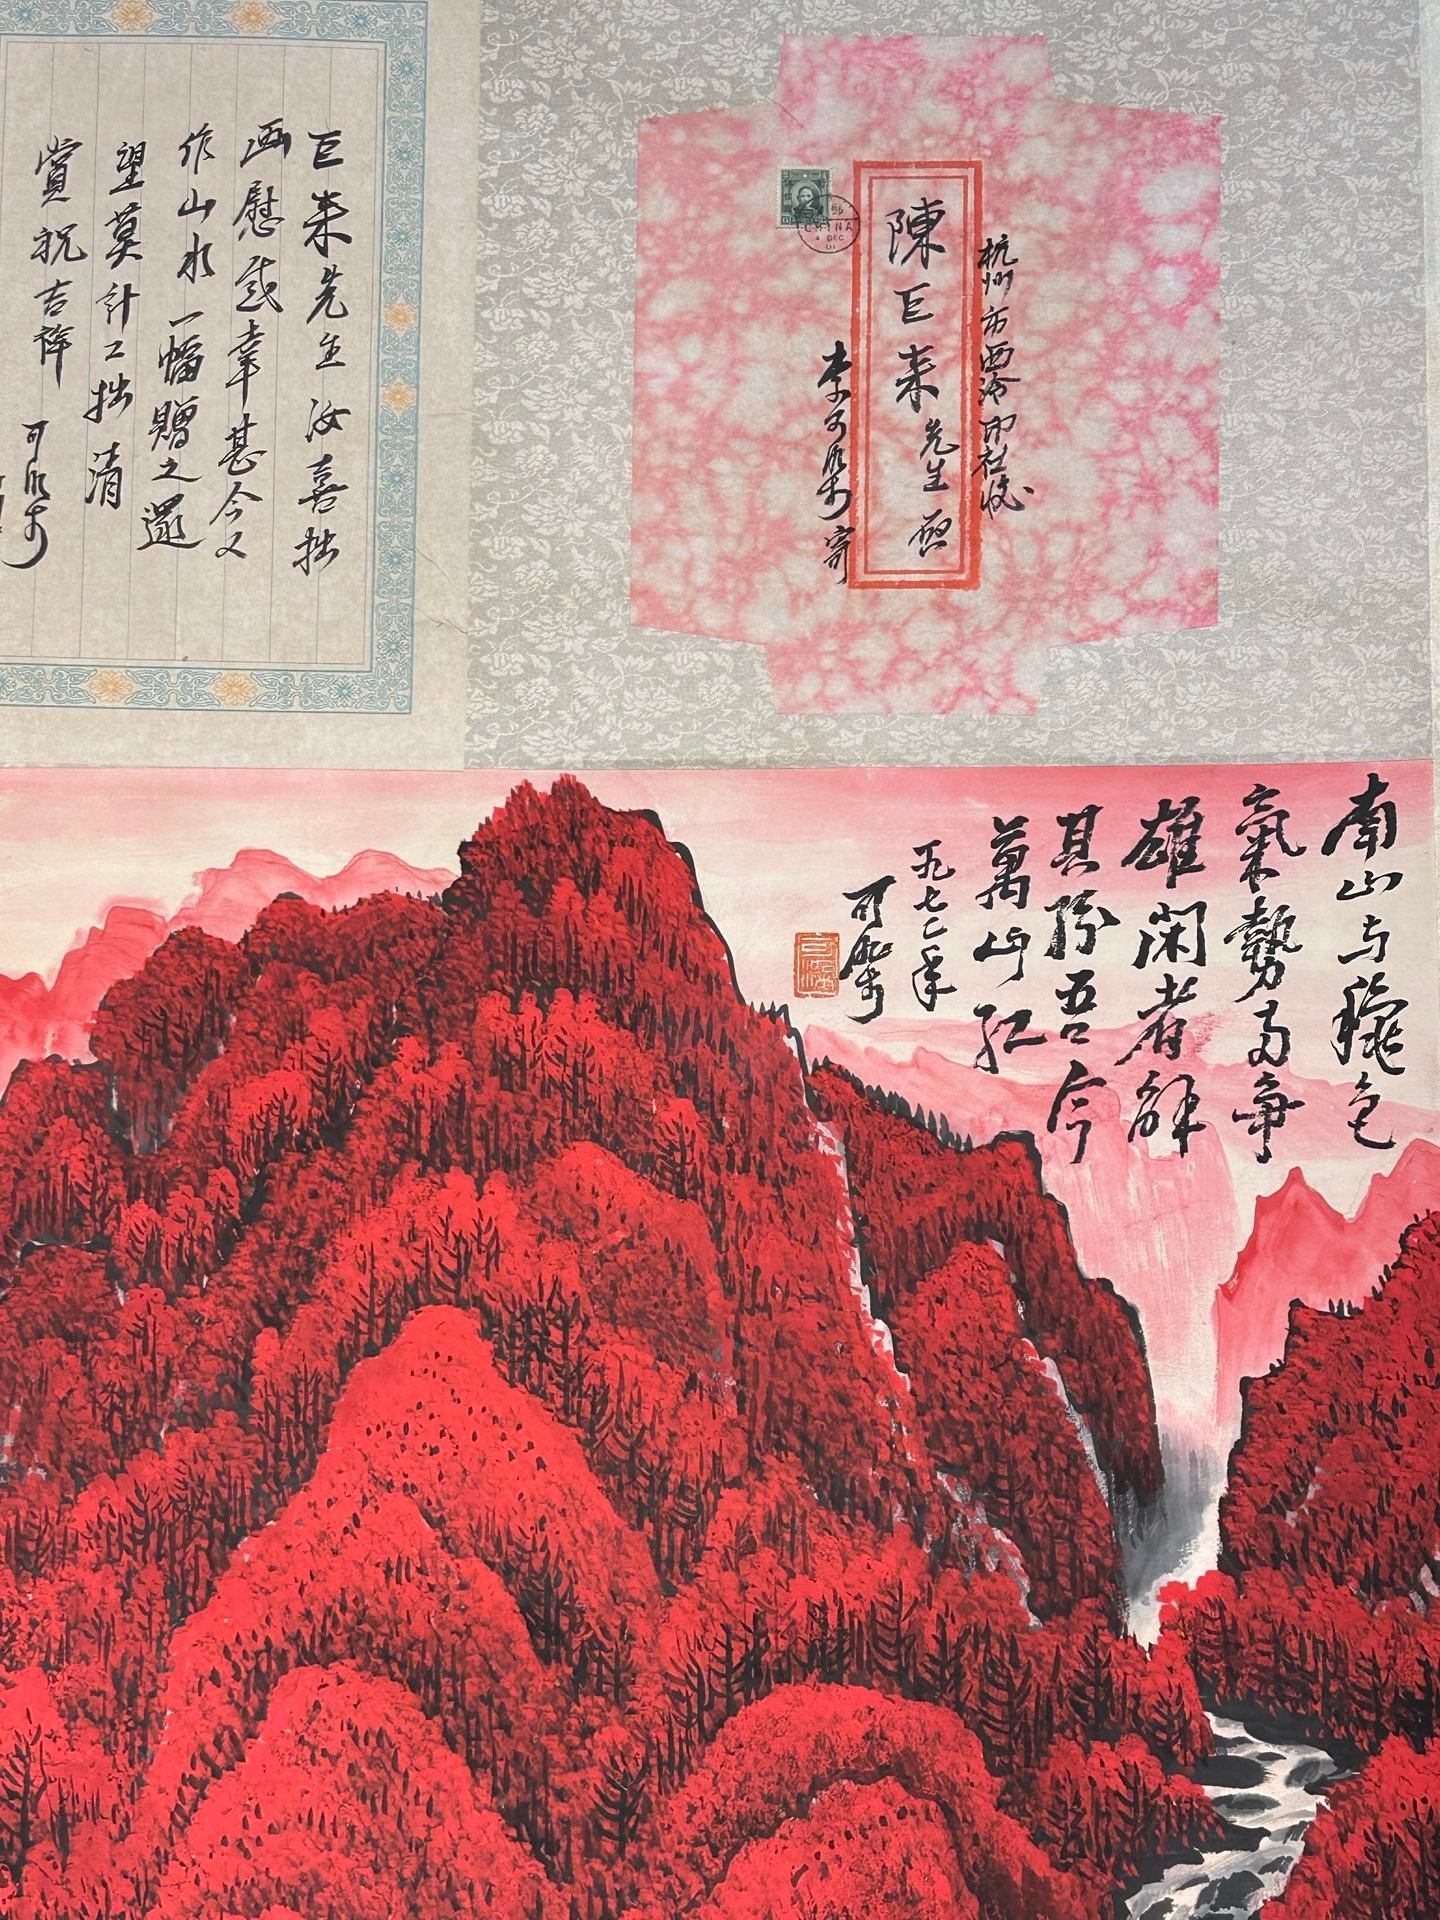 巨来先生汝喜拙
画慰感幸甚今又
作山水一幅贈之還
望莫計工拙清
賞祝吉祥
可染
杭州市西泠印社收
陳巨来先生啟
李可染寄
郵
CHINA
4 DEC
01
南山与秋色
氣勢两爭
雄閑者解
其餘吾今
萬山红
一九七二年
可染
可染